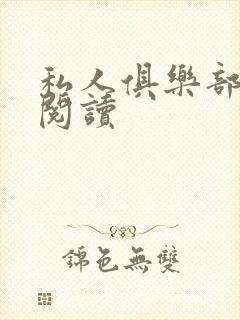 私人俱樂部
閱讀
錦色無雙